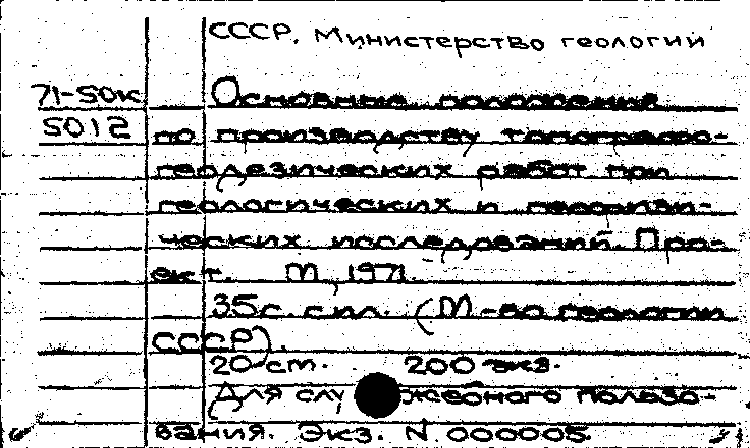 СССР. Министерство геологии
71-50к
5012
Основные положения
по производству топографо-
геодезических работ при
геологических и геофизи-
ческих исследований. Про-
ект. М, 1971.
35с. с ил. (М-во геологии
СССР).
20 см. 200 экз.
Для служебного пользо-
вания. Экз. N 000005